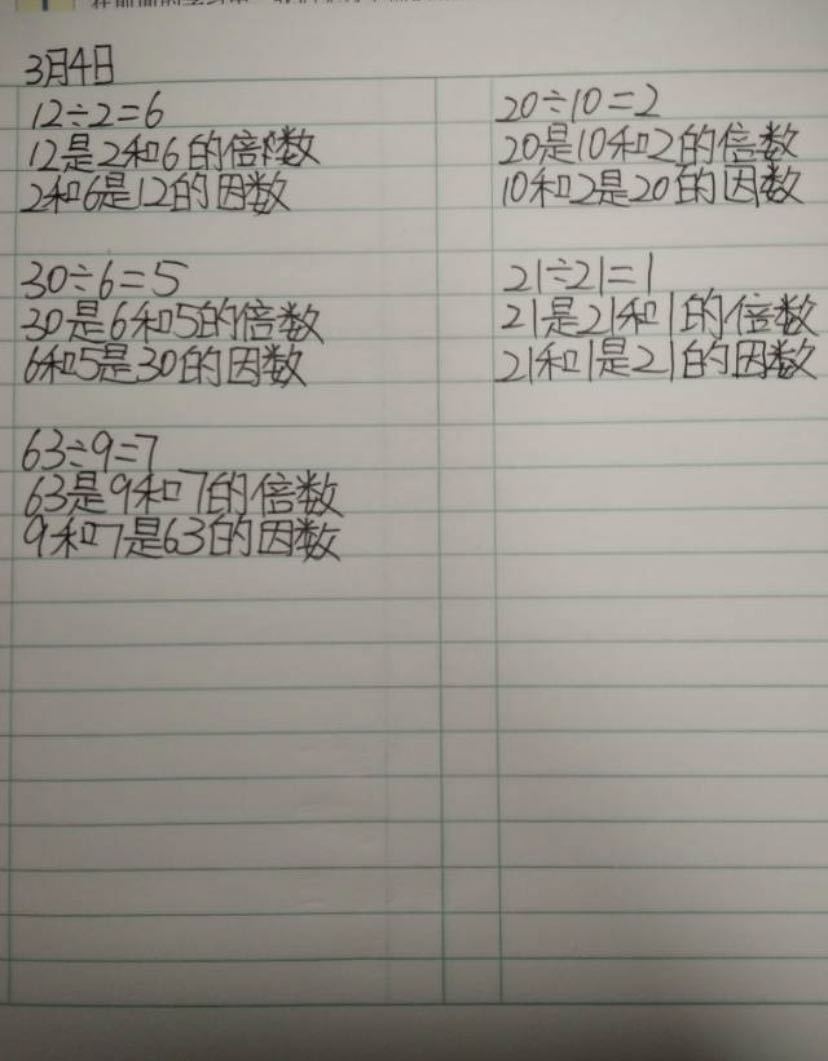 3月4日
12÷2=6
12是2和6的倍数
2和6是12的因数
30÷6=5
30是6和5的倍数
6和5是30的因数
63÷9=7
63是9和7的倍数
9和7是63的因数
20÷10=2
20是10和2的倍数
10和2是20的因数
21÷21=1
21是21和1的倍数
21和1是21的因数